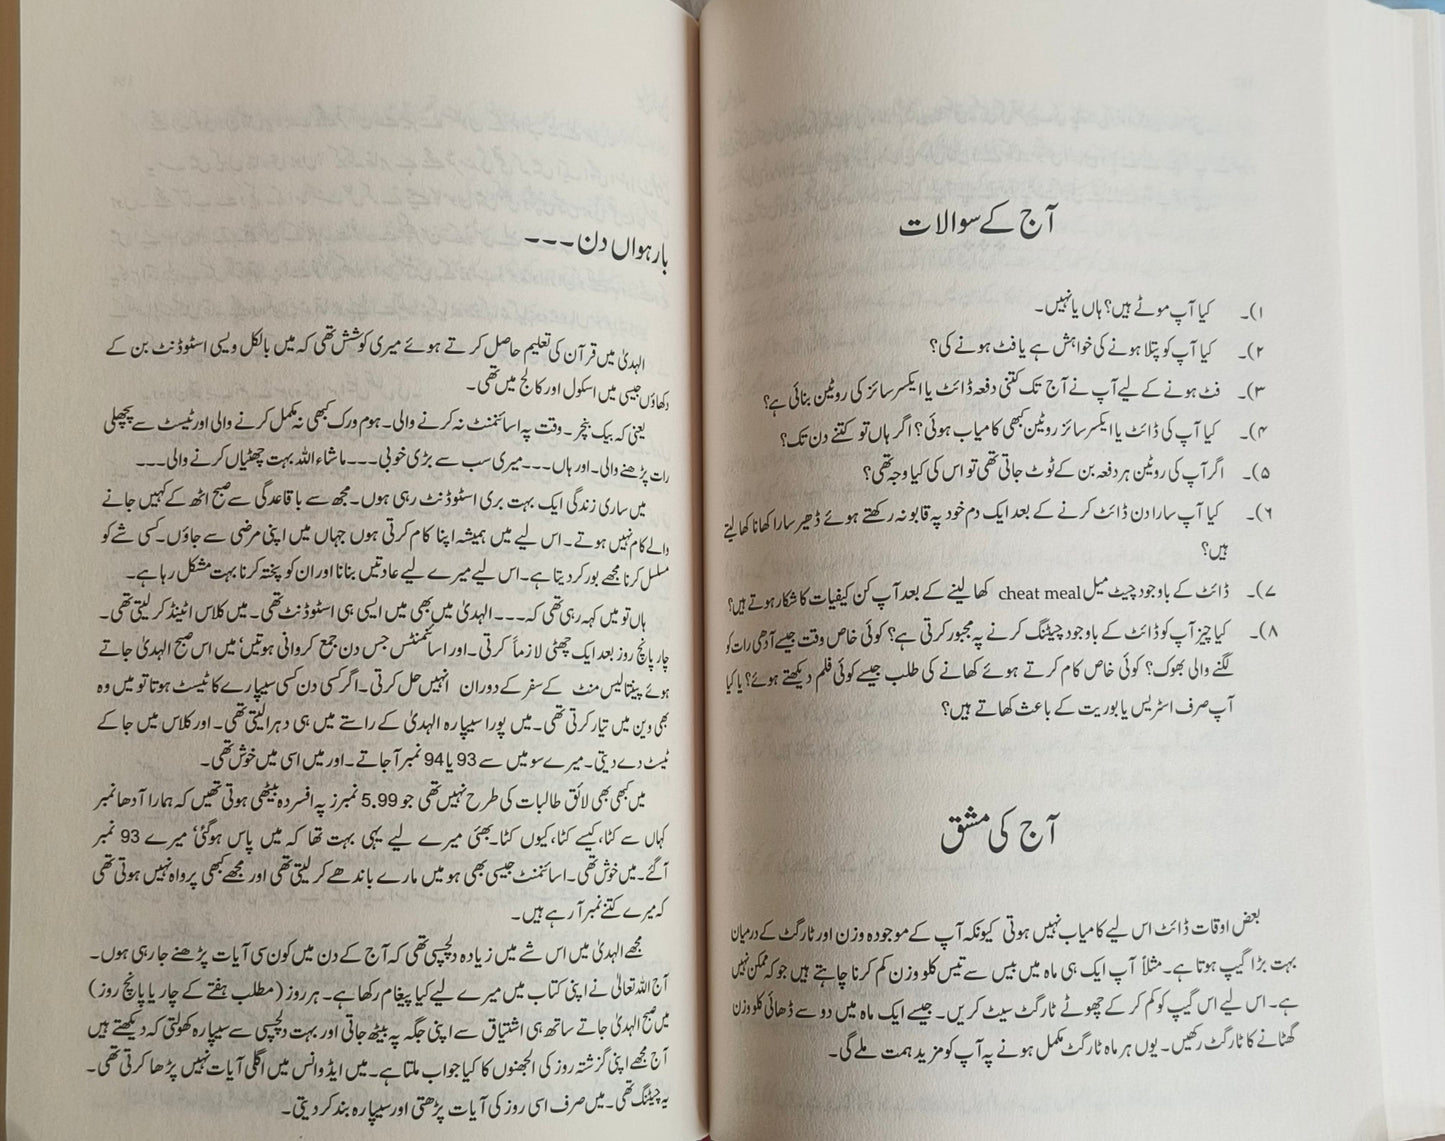 آج کے سوالات
۱)۔ کیا آپ موٹے ہیں؟ ہاں یا نہیں۔
۲)۔ کیا آپ کو پتلا ہونے کی خواہش ہے یا فٹ ہونے کی؟
۳)۔ فٹ ہونے کے لیے آپ نے آج تک کتنی دفعہ ڈائٹ یا ایکسرسائز کی روٹین بنائی ہے؟
۴)۔ کیا آپ کی ڈائٹ یا ایکسرسائز روٹین کبھی کامیاب ہوئی؟ اگر ہاں تو کتنے دن تک؟
۵)۔ اگر آپ کی روٹین ہر دفعہ بن کے ٹوٹ جاتی تھی تو اس کی کیا وجہ تھی؟
۶)۔ کیا آپ سارا دن ڈائٹ کرنے کے بعد ایک دم خود پہ قابو نہ رکھتے ہوئے ڈھیر سارا کھانا کھا لیتے
ہیں؟
۷)۔ ڈائٹ کے باوجود چیٹ میل cheat meal کھا لینے کے بعد آپ کن کیفیات کا شکار ہوتے ہیں؟
۸)۔ کیا چیز آپ کو ڈائٹ کے باوجود چیٹنگ کرنے پہ مجبور کرتی ہے؟ کوئی خاص وقت جیسے آدھی رات کو
لگنے والی بھوک؟ کوئی خاص کام کرتے ہوئے کھانے کی طلب جیسے کوئی فلم دیکھتے ہوئے؟ یا کیا
آپ صرف اسٹریس یا بوریت کے باعث کھاتے ہیں؟
آج کی مشق
بعض اوقات ڈائٹ اس لیے کامیاب نہیں ہوتی کیونکہ آپ کے موجودہ وزن اور ٹارگٹ کے درمیان
بہت بڑا گیپ ہوتا ہے۔ مثلاً آپ ایک ہی ماہ میں بیس سے تیس کلو وزن کم کرنا چاہتے ہیں جو کہ ممکن نہیں
ہے۔ اس لیے اس گیپ کو کم کر کے چھوٹے ٹارگٹ سیٹ کریں۔ جیسے ایک ماہ میں دو سے ڈھائی کلو وزن
گھٹانے کا ٹارگٹ رکھیں۔ یوں ہر ماہ ٹارگٹ مکمل ہونے پہ آپ کو مزید ہمت ملے گی۔
بارہواں دن ۔۔۔
الہدیٰ میں قرآن کی تعلیم حاصل کرتے ہوئے میری کوشش تھی کہ میں بالکل ویسی اسٹوڈنٹ بن کے
دکھاؤں جیسی میں اسکول اور کالج میں تھی۔
یعنی کہ بیک بنچر۔ وقت پہ اسائنمنٹ نہ کرنے والی۔ ہوم ورک کبھی نہ مکمل کرنے والی اور ٹیسٹ سے پچھلی
رات پڑھنے والی۔ اور ہاں۔۔۔ میری سب سے بڑی خوبی۔۔۔ ماشاء اللہ بہت چھٹیاں کرنے والی۔۔۔
میں ساری زندگی ایک بہت بری اسٹوڈنٹ رہی ہوں۔ مجھ سے باقاعدگی سے صبح اٹھ کے کہیں جانے
والے کام نہیں ہوتے۔ اس لیے میں ہمیشہ اپنا کام کرتی ہوں جہاں میں اپنی مرضی سے جاؤں۔ کسی شے کو
مسلسل کرنا مجھے بور کر دیتا ہے۔ اس لیے میرے لیے عادتیں بنانا اور ان کو پختہ کرنا بہت مشکل رہا ہے۔
ہاں تو میں کہہ رہی تھی کہ۔۔۔ الہدیٰ میں بھی میں ایسی ہی اسٹوڈنٹ تھی۔ میں کلاس اٹینڈ کر لیتی تھی۔
چار پانچ روز بعد ایک چھٹی لازماً کرتی۔ اور اسائنمنٹس جس دن جمع کروانی ہوتیں' میں اس صبح الہدیٰ جاتے
ہوئے پینتالیس منٹ کے سفر کے دوران انہیں حل کرتی۔ اگر کسی دن کسی سیپارے کا ٹیسٹ ہوتا تو میں وہ
بھی وین میں تیار کرتی تھی۔ میں پورا سیپارہ الہدیٰ کے راستے میں ہی دہرا لیتی تھی۔ اور کلاس میں جا کے
ٹیسٹ دے دیتی۔ میرے سو میں سے 93 یا 94 نمبر آجاتے۔ اور میں اسی میں خوش تھی۔
میں کبھی بھی لائق طالبات کی طرح نہیں تھی جو 5.99 نمبرز پہ افسردہ بیٹھی ہوتی تھیں کہ ہمارا آدھا نمبر
کہاں سے کٹا، کیسے کٹا، کیوں کٹا۔ بھئی میرے لیے یہی بہت تھا کہ میں پاس ہوگئی' میرے 93 نمبر
آگئے۔ میں خوش تھی۔ اسائنمنٹ جیسی بھی ہو میں مارے باندھے کر لیتی تھی اور مجھے کبھی پرواہ نہیں ہوتی تھی
کہ میرے کتنے نمبر آرہے ہیں۔
مجھے الہدیٰ میں اس شے میں زیادہ دلچسپی تھی کہ آج کے دن میں کون سی آیات پڑھنے جارہی ہوں۔
آج اللہ تعالیٰ نے اپنی کتاب میں میرے لیے کیا پیغام رکھا ہے۔ ہر روز (مطلب ہفتے کے چار یا پانچ روز)
میں صبح الہدیٰ جاتے ساتھ ہی اشتیاق سے اپنی جگہ پہ بیٹھ جاتی اور بہت دلچسپی سے سیپارہ کھولتی کہ دیکھتے ہیں
آج مجھے اپنی گزشتہ روز کی الجھنوں کا کیا جواب ملتا ہے۔ میں ایڈوانس میں اگلی آیات نہیں پڑھا کرتی تھی۔
یہ چیٹنگ تھی۔ میں صرف اسی روز کی آیات پڑھتی اور سیپارہ بند کر دیتی۔